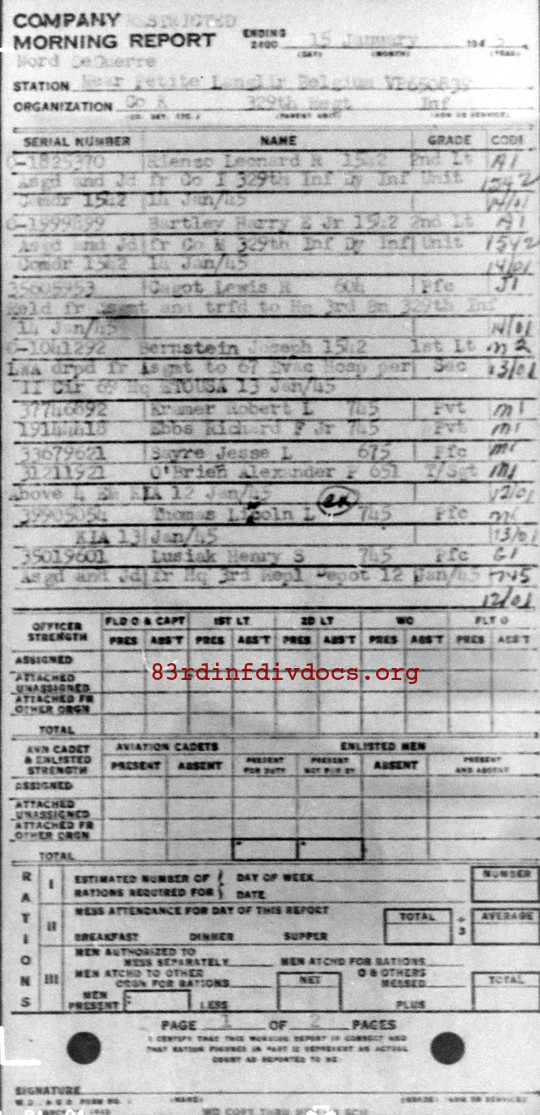 COMPANY RESTRICTED
MORNING REPORT ENDING 2400 15 January 194
(DAY) (MONTH) (YEAR)
Nord DeGuerre
STATION Near Petite Langlir Belgium VP650839
ORGANIZATION Co K 329th Regt Inf
(CO. DET. ETC.) (PARENT UNIT) (ARM OR SERVICE)
SERIAL NUMBER NAME GRADE CODE
O-1825370 Rienzo Leonard R 1542 2nd Lt A1
Asgd and Jd fr Co I 329th Inf Dy Inf Unit 1542
Comdr 1542 14 Jan/45 14/01
O-1999899 Bartley Harry E Jr 1542 2nd Lt A1
Asgd and Jd fr Co M 329th Inf Dy Inf Unit 1542
Comdr 1542 14 Jan/45 14/01
35605953 Cagot Lewis R 604 Pfc J1
Reld fr Asgmt and trfd to Hq 3rd Bn 329th Inf
14 Jan/45 14/01
O-1041292 Bernstein Joseph 1542 1st Lt M2
LWA drpd fr Asgmt to 67 Evac Hosp per Sec 13/01
II Cir 69 Hq ETOUSA 13 Jan/45
37746892 Kramer Robert L 745 Pvt M1
19144418 Ebbs Richard F Jr 745 Pvt M1
33679621 Sayre Jesse L 675 Pfc M1
31211921 O'Brien Alexander P 651 T/Sgt M1
Above 4 EM KIA 12 Jan/45 12/01
39905054 Thomas Lincoln L 745 Pfc
KIA 13 Jan/45 13/01
35019601 Lusiak Henry S 745 Pfc G1
Asgd and Jd fr Hq 3rd Repl Depot 12 Jan/45 745
12/01
OFFICER STRENGTH FLD O & CAPT 1ST LT 2D LT WO FLT O
PRES ABS'T PRES ABS'T PRES ABS'T PRES ABS'T PRES ABS'T
ASSIGNED
ATTACHED UNASSIGNED
ATTACHED FR OTHER ORGN
TOTAL
83rdinfdivdocs.org
AVN CADET & ENLISTED STRENGTH AVIATION CADETS ENLISTED MEN
PRESENT ABSENT PRESENT FOR DUTY PRESENT NOT FOR DY ABSENT PRESENT AND ABSENT
ASSIGNED
ATTACHED UNASSIGNED
ATTACHED FR OTHER ORGN
TOTAL
RATIONS
I ESTIMATED NUMBER OF RATIONS REQUIRED FOR { DAY OF WEEK DATE NUMBER
II MESS ATTENDANCE FOR DAY OF THIS REPORT TOTAL ÷ 3 AVERAGE
BREAKFAST DINNER SUPPER
III MEN AUTHORIZED TO MESS SEPARATELY MEN ATCHD FOR RATIONS
MEN ATCHD TO OTHER ORGN FOR RATIONS NET O & OTHERS MESSED TOTAL
MEN PRESENT LESS PLUS
PAGE 1 OF 2 PAGES
I CERTIFY THAT THIS MORNING REPORT IS CORRECT AND
THAT RATION FIGURES IN PART II REPRESENT AN ACTUAL
COUNT AS REPORTED TO ME.
SIGNATURE
W.D., A.G.O. FORM NO. 1 (NAME) (GRADE) (ARM OR SERVICE)
WD COPY THRU